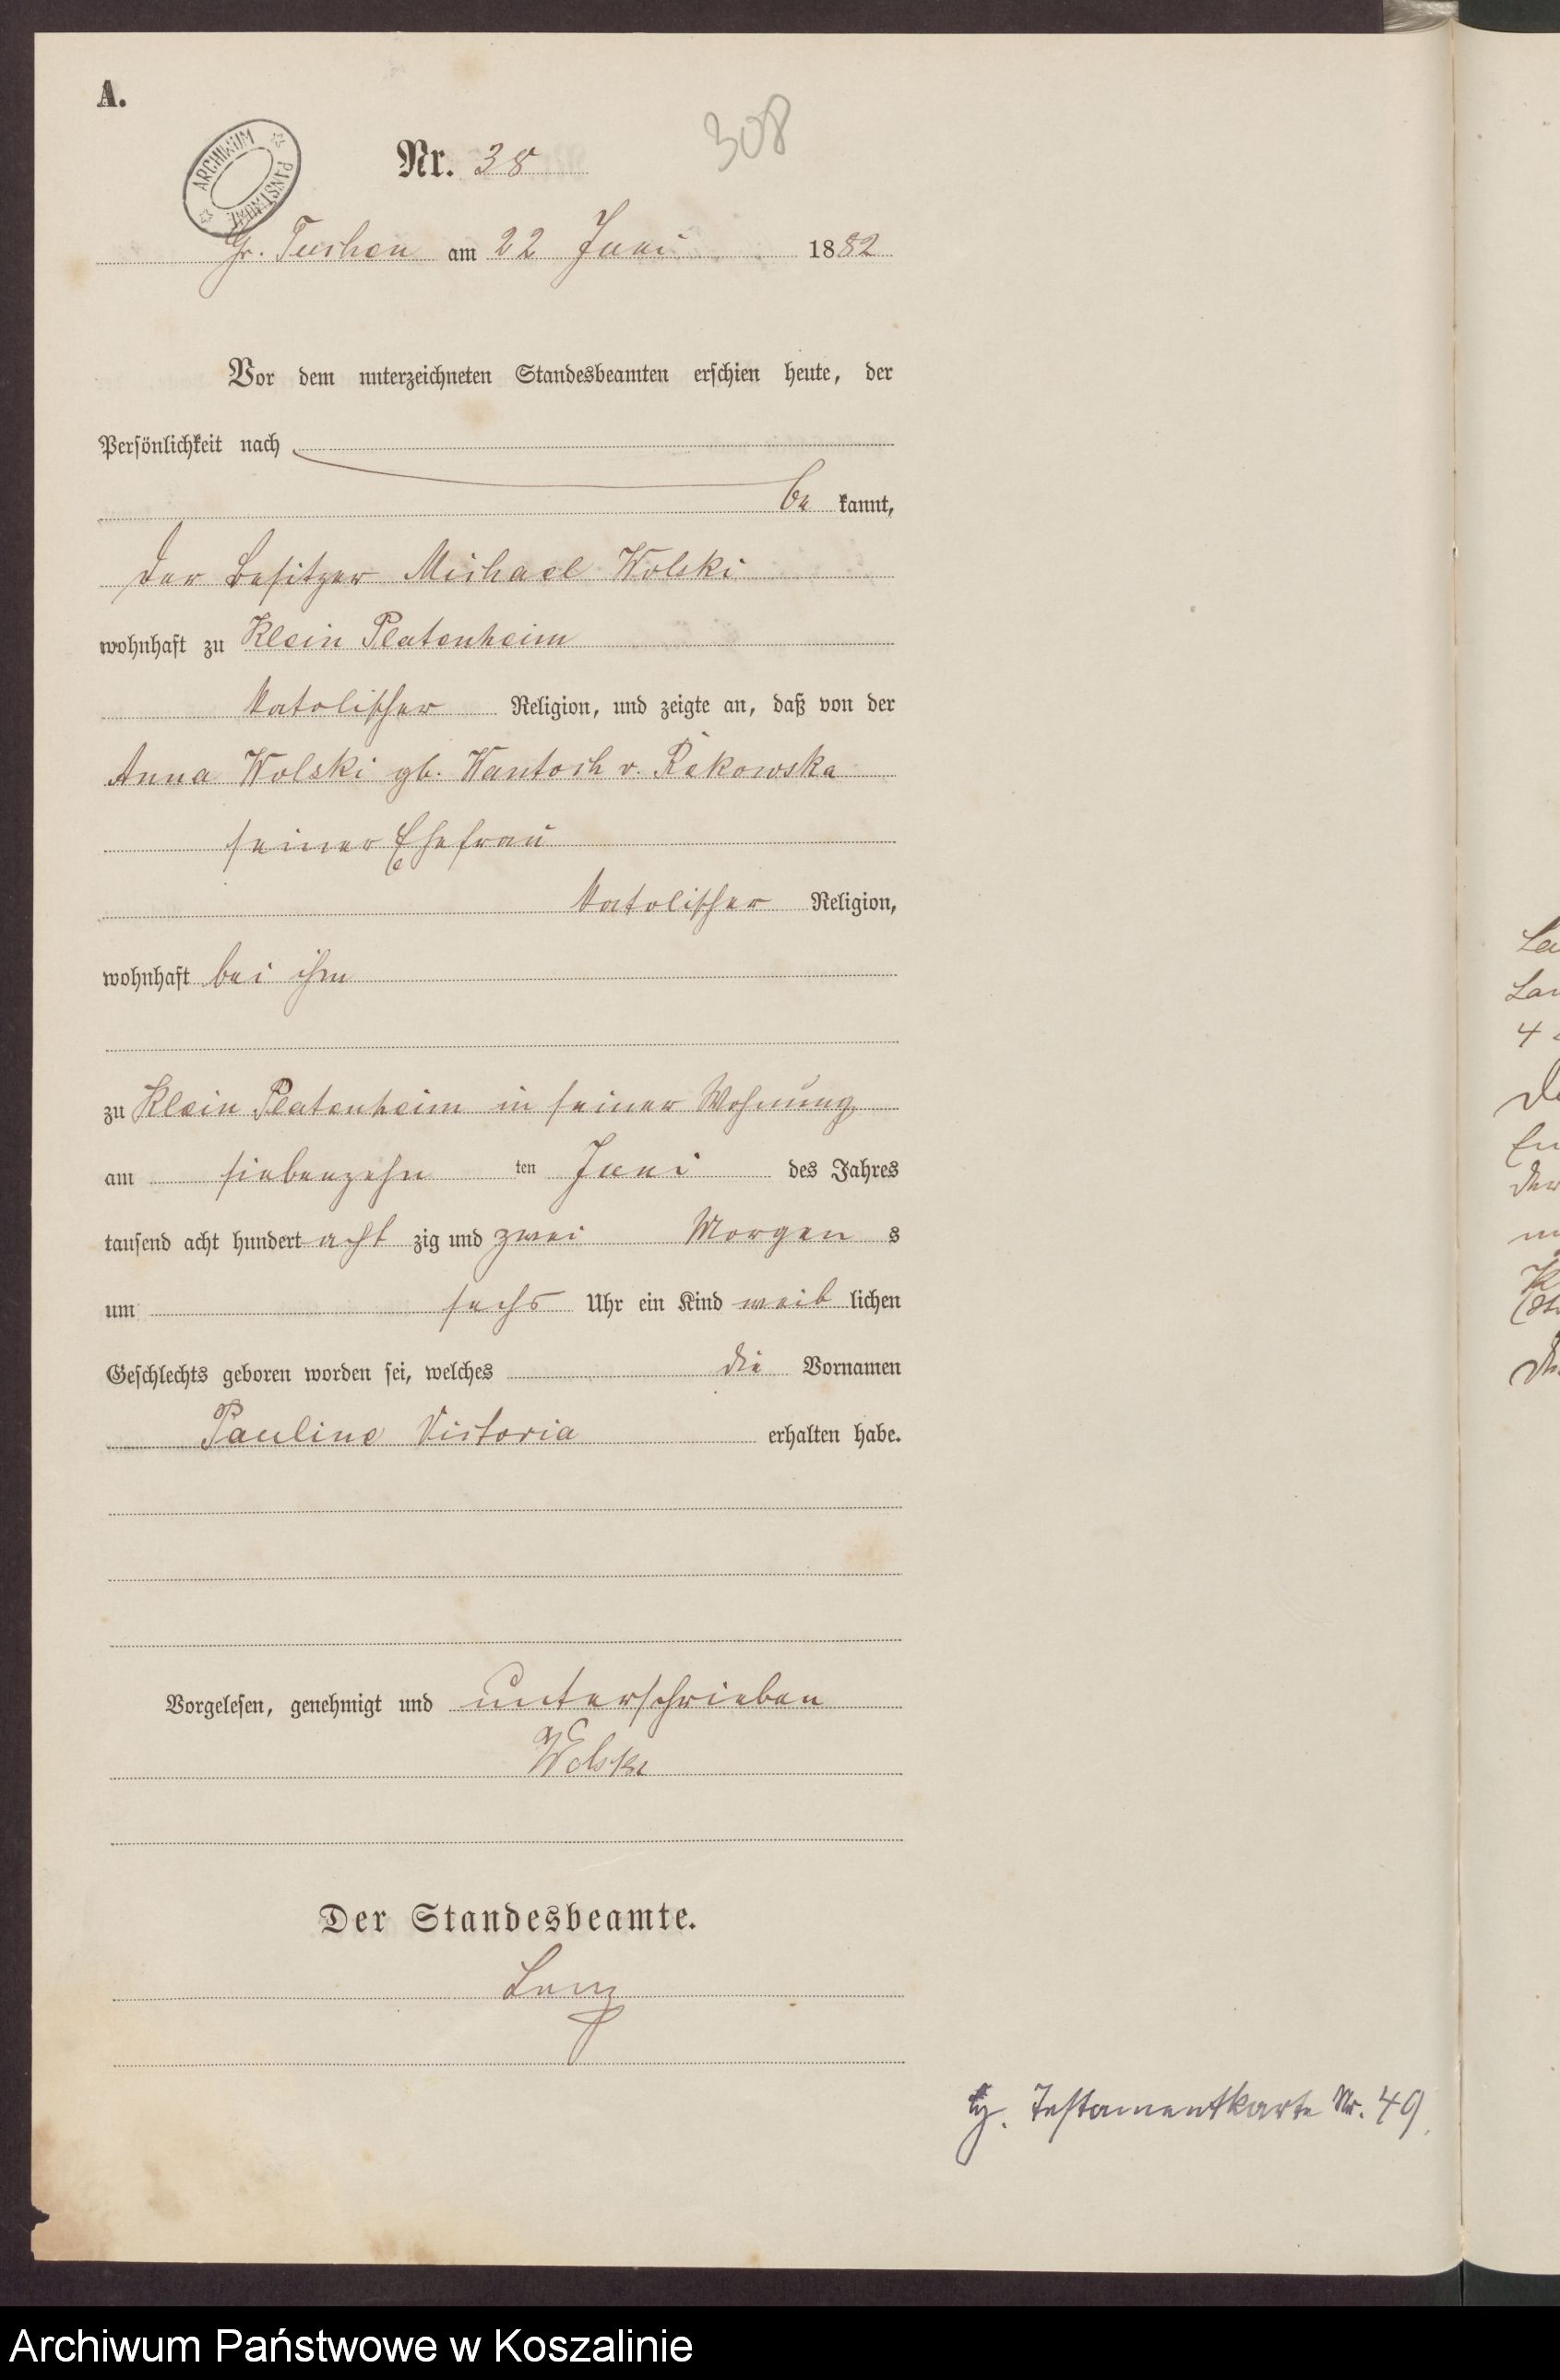 A.
ARCHIWUM PAŃSTWOWE
Nr. 38
308
Gr. Tuchen am 22 Juni 1882
Vor dem unterzeichneten Standesbeamten erschien heute, der
Persönlichkeit nach
be kannt,
der Besitzer Michael Wolski
wohnhaft zu Klein Platenheim
katolischer Religion, und zeigte an, daß von der
Anna Wolski gb. Wantoch v. Rekowska
seiner Ehefrau
katolischer Religion,
wohnhaft bei ihm
zu Klein Platenheim in seiner Wohnung
am siebenzehn ten Juni des Jahres
tausend acht hundert acht zig und zwei Morgen s
um sechs Uhr ein Kind weib lichen
Geschlechts geboren worden sei, welches die Vornamen
Pauline Victoria erhalten habe.
Vorgelesen, genehmigt und unterschrieben
Wolski
Der Standesbeamte.
Testamentkarte Nr. 49.
Archiwum Państwowe w Koszalinie